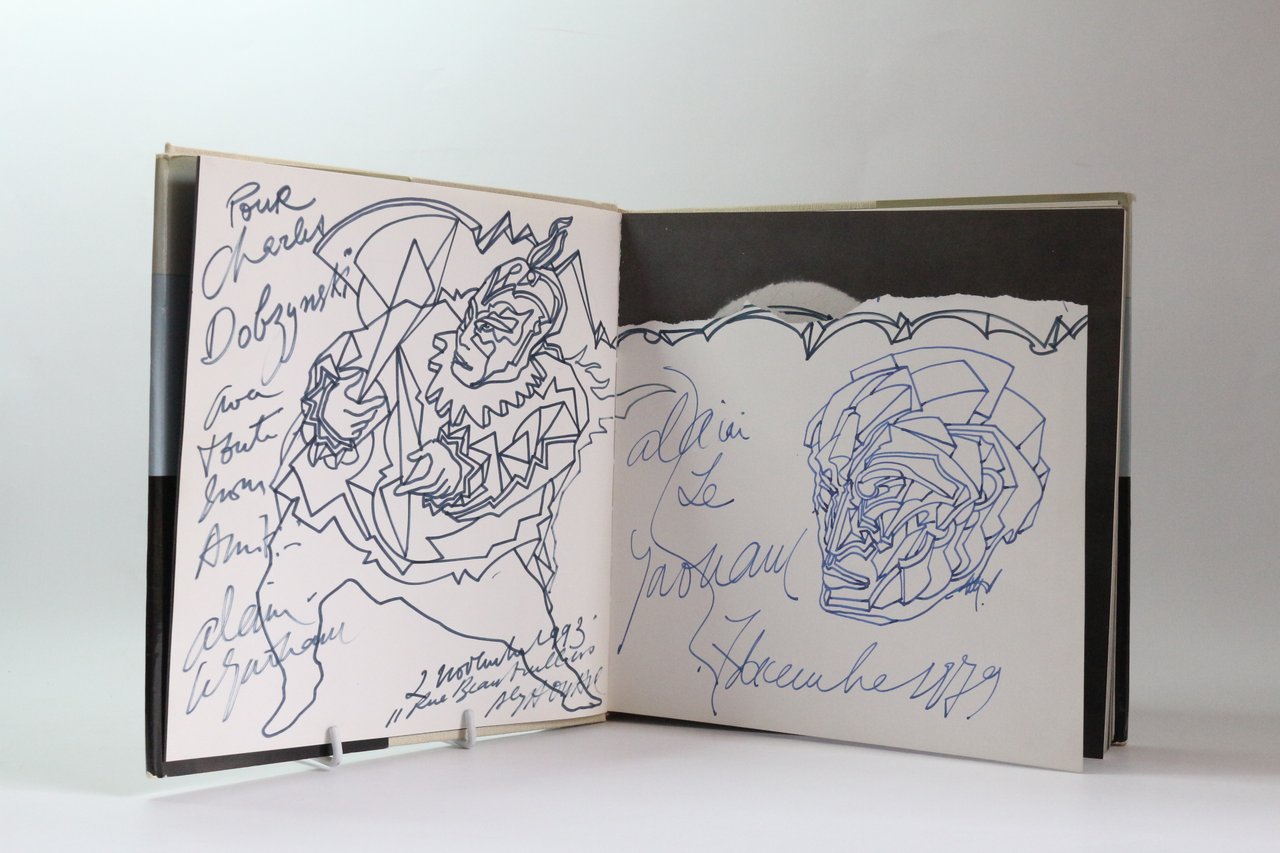 Pour
Charles
Dobzynski
avec
toute
mon
Amitié
Alain
Le Yaouanc
2 Novembre 1993
rue Beautreillis
Alain
Le
Yaouanc
7 décembre 1979